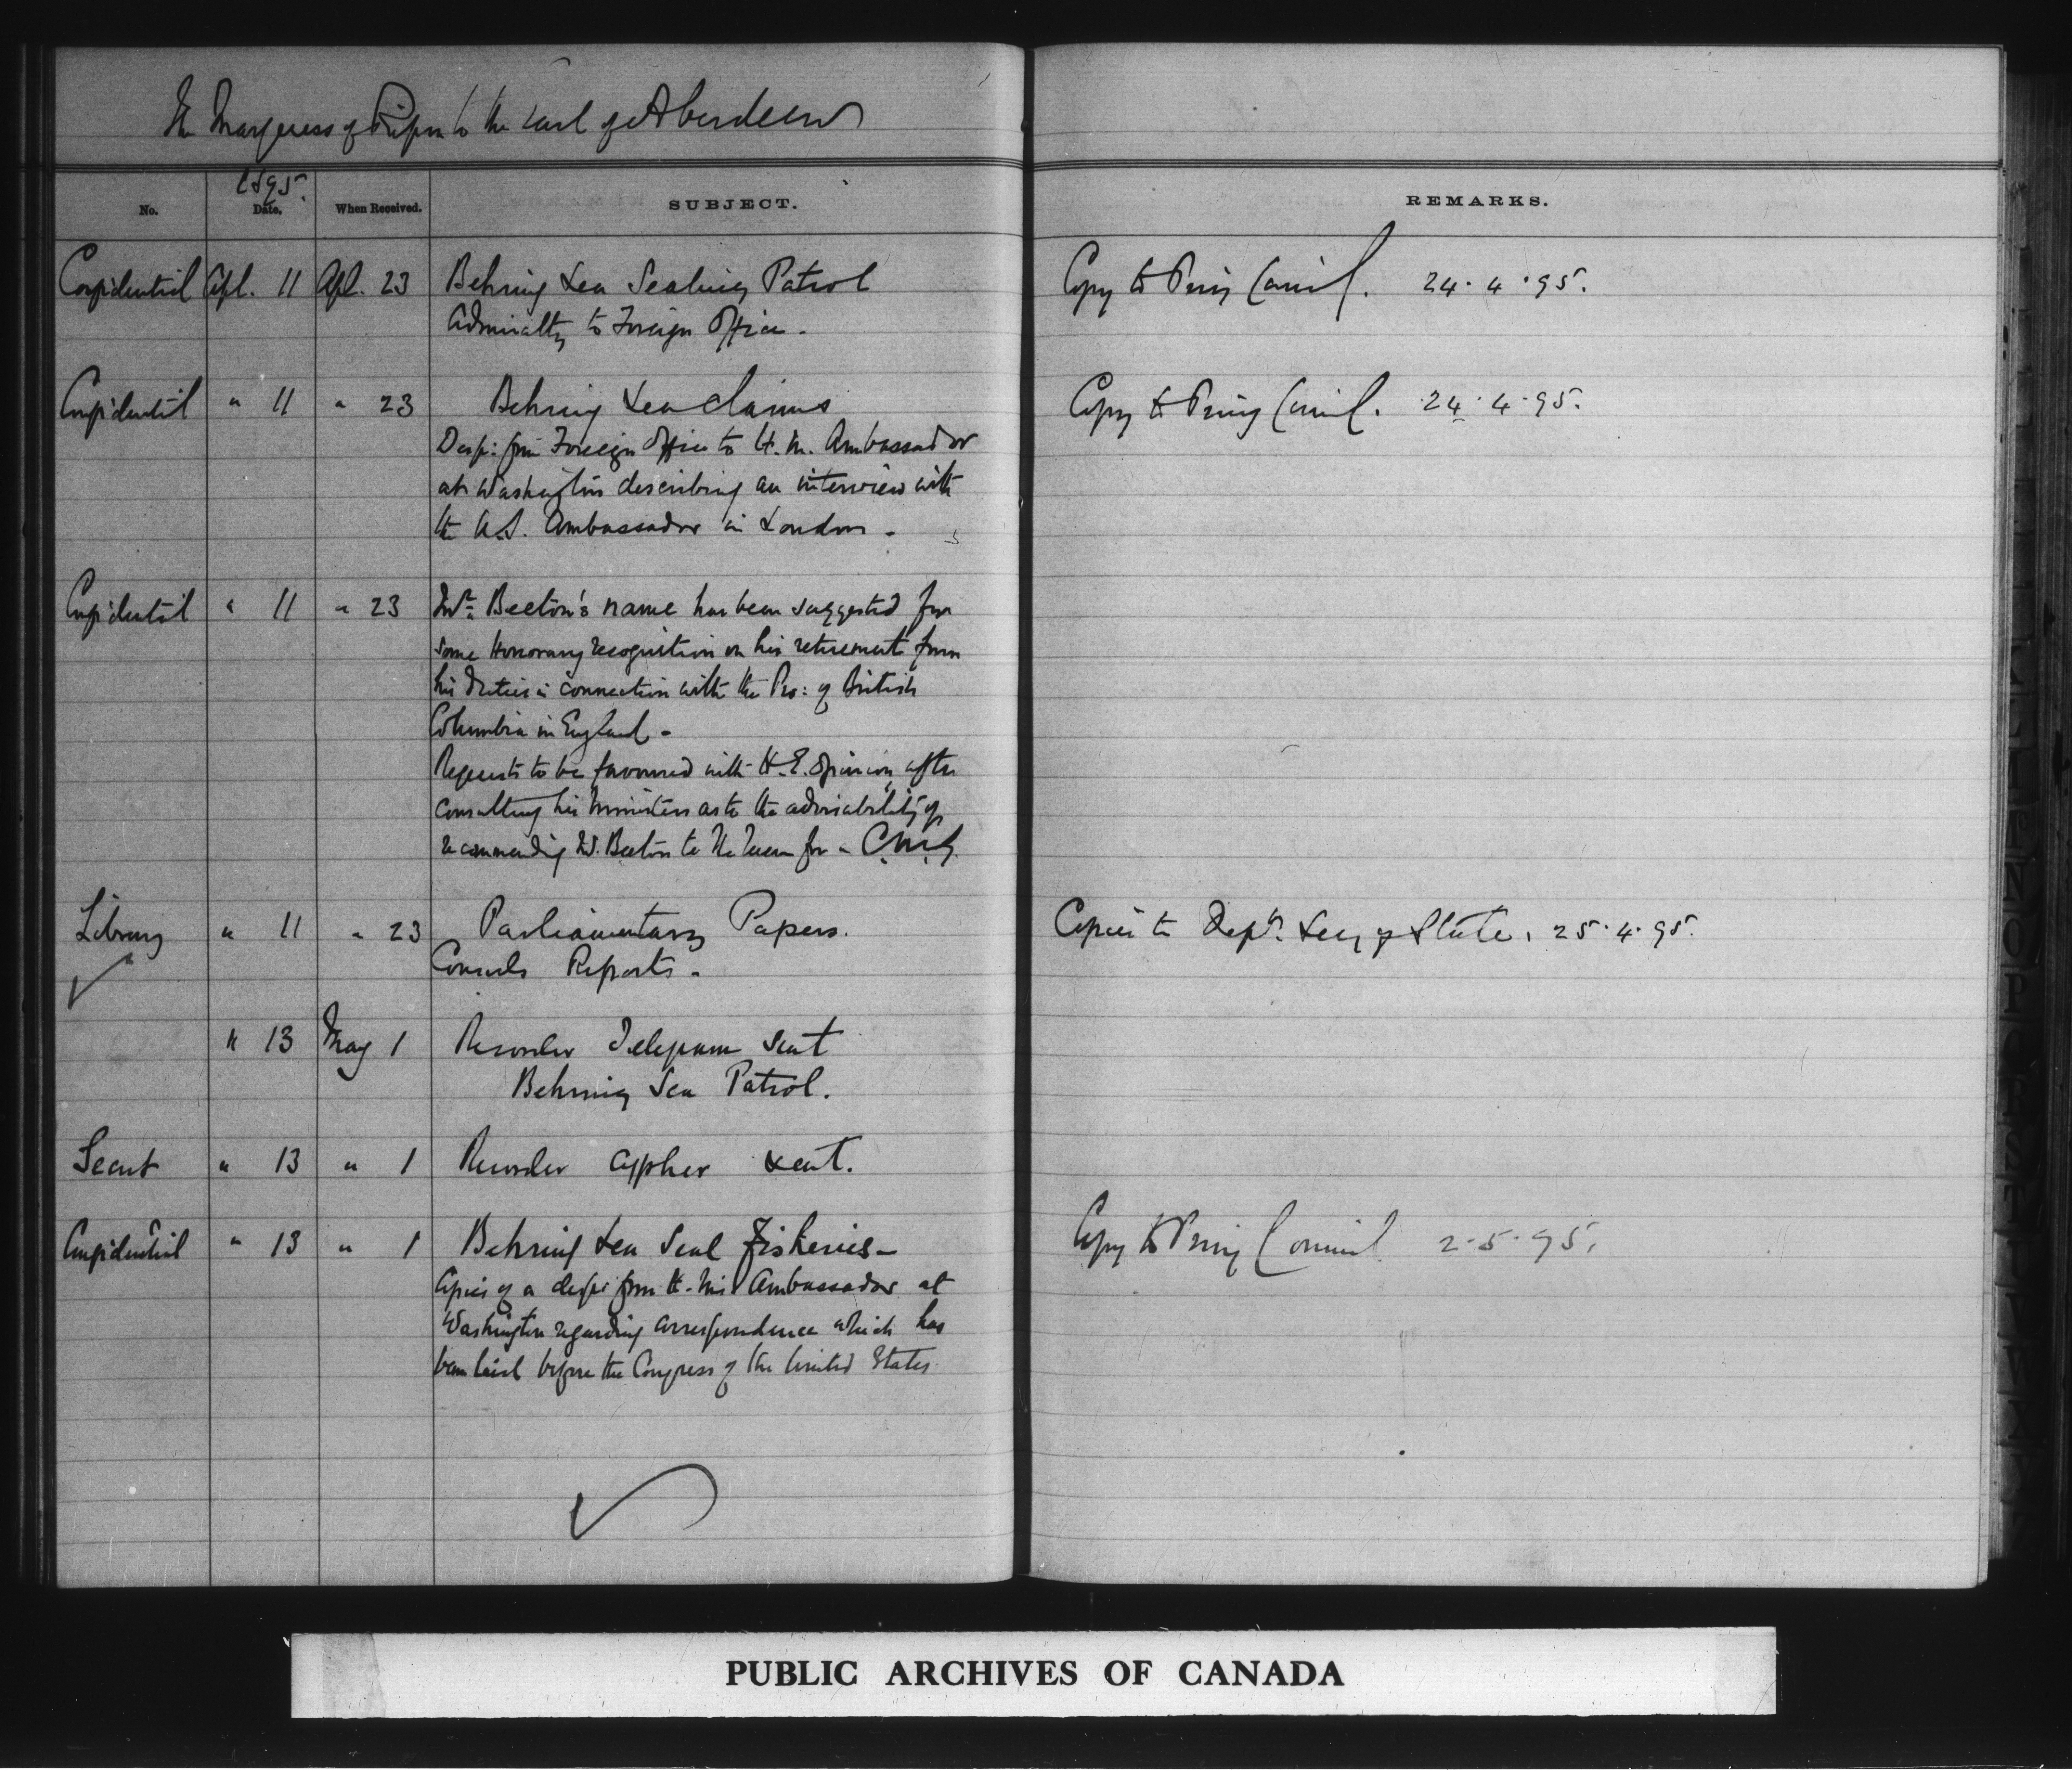 The Marquess of Ripon to the Earl of Aberdeen
1895.
No. Date. When Received. SUBJECT. REMARKS.
Confidential Apl. 11 Apl. 23 Behring Sea Sealing Patrol Copy to Privy Council. 24.4.95.
Admiralty to Foreign Office.
Confidential " 11 " 23 Behring Sea Claims Copy to Privy Council. 24.4.95.
Desp: from Foreign Office to H.M. Ambassador
at Washington describing an interview with
the U.S. Ambassador in London -
Confidential " 11 " 23 Mr. Beeton's name has been suggested for
some Honorary recognition on his retirement from
his duties in connection with the Pro: of British
Columbia in England -
Requests to be favoured with H.E. opinion, after
consulting his Ministers as to the advisability of
recommending Mr. Beeton to the Queen for a C.M.G.
Library " 11 " 23 Parliamentary Papers. Copies to Dept. Secy of State, 25.4.95.
Consuls Reports -
" 13 May 1 Recorder Telegram sent
Behring Sea Patrol.
Secret " 13 " 1 Recorder Cypher sent.
Confidential " 13 " 1 Behring Sea Seal Fisheries - Copy to Privy Council 2.5.95.
Copies of a desp: from H.M's Ambassador at
Washington regarding correspondence which has
been laid before the Congress of the United States.
PUBLIC ARCHIVES OF CANADA